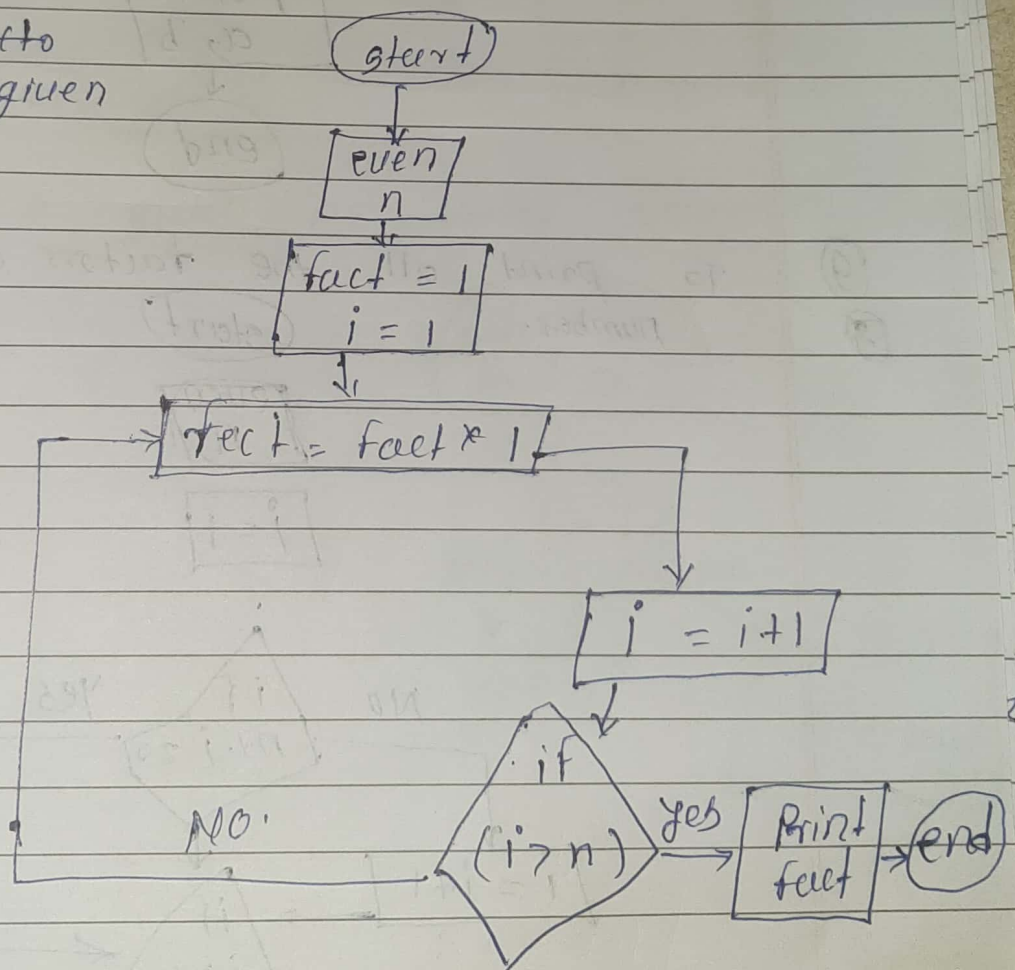 cto
given
start
even
n
fact = 1
i = 1
fect = fact * 1
i = i+1
if
(i > n)
yes
NO.
Print
fact
end